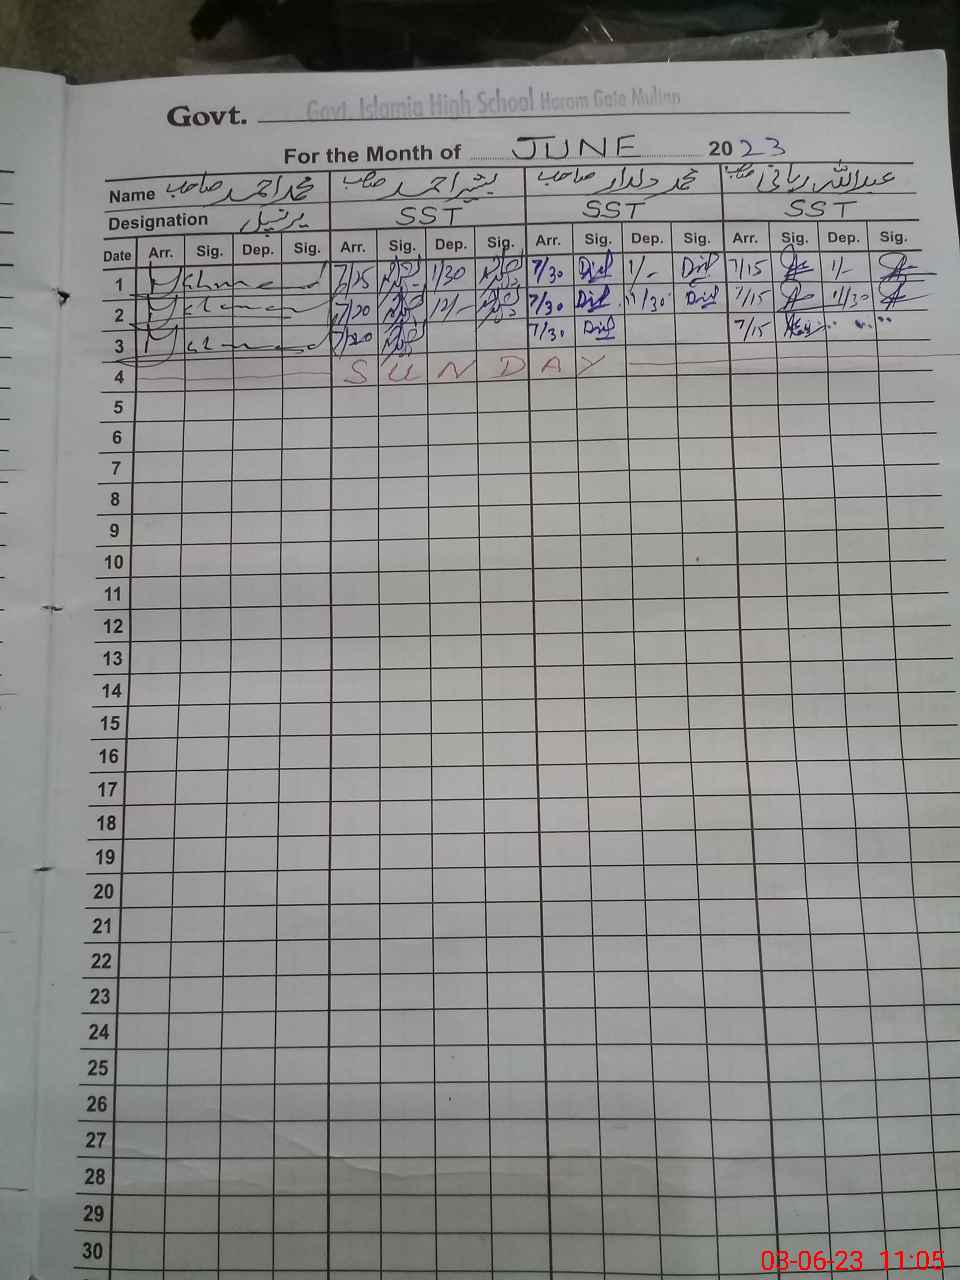 Govt. Govt. Islamia High School Haram Gate Multan
For the Month of JUNE 2023
Name محمد احمد صاحب بشیر احمد صاحب محمد دلدار صاحب عبداللہ ربانی صاحب
Designation پرنسپل SST SST SST
Date Arr. Sig. Dep. Sig. Arr. Sig. Dep. Sig. Arr. Sig. Dep. Sig. Arr. Sig. Dep. Sig.
1 7/15 1/30 7/30 1/- 7/15 1/-
2 7/20 12/- 7/30 11/30 7/15 11/30
3 7/20 7/30 7/15
4 SUNDAY
5
6
7
8
9
10
11
12
13
14
15
16
17
18
19
20
21
22
23
24
25
26
27
28
29
30
03-06-23 11:05